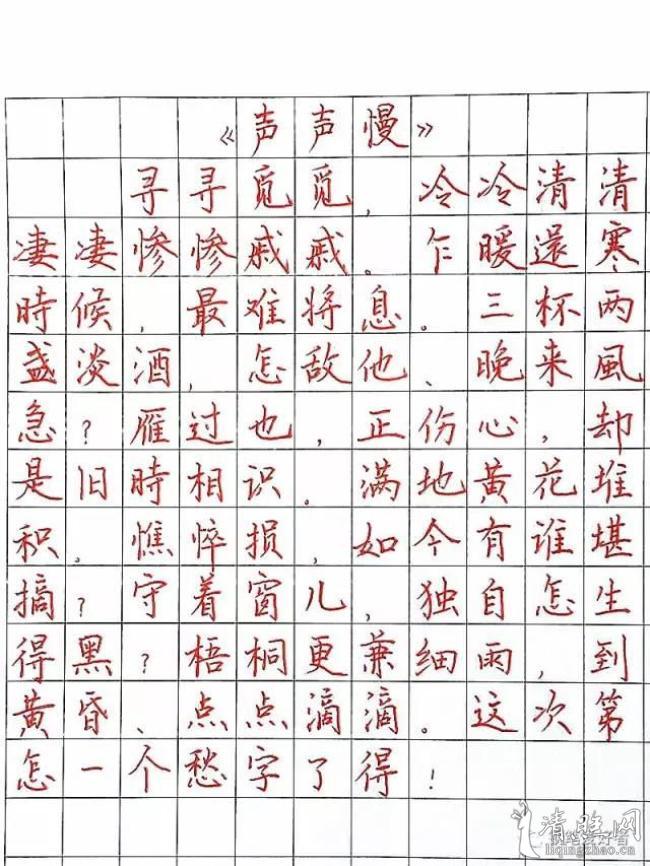 《声声慢》
寻寻觅觅，冷冷清清
凄凄惨惨戚戚。乍暖還寒
時候，最难将息。三杯两
盏淡酒，怎敌他、晚来風
急？雁过也，正伤心，却
是旧時相识。满地黄花堆
积。憔悴损，如今有谁堪
摘？守着窗儿，独自怎生
得黑？梧桐更兼细雨，到
黄昏、点点滴滴。这次第
怎一个愁字了得！
清照网
liqingzhao.com